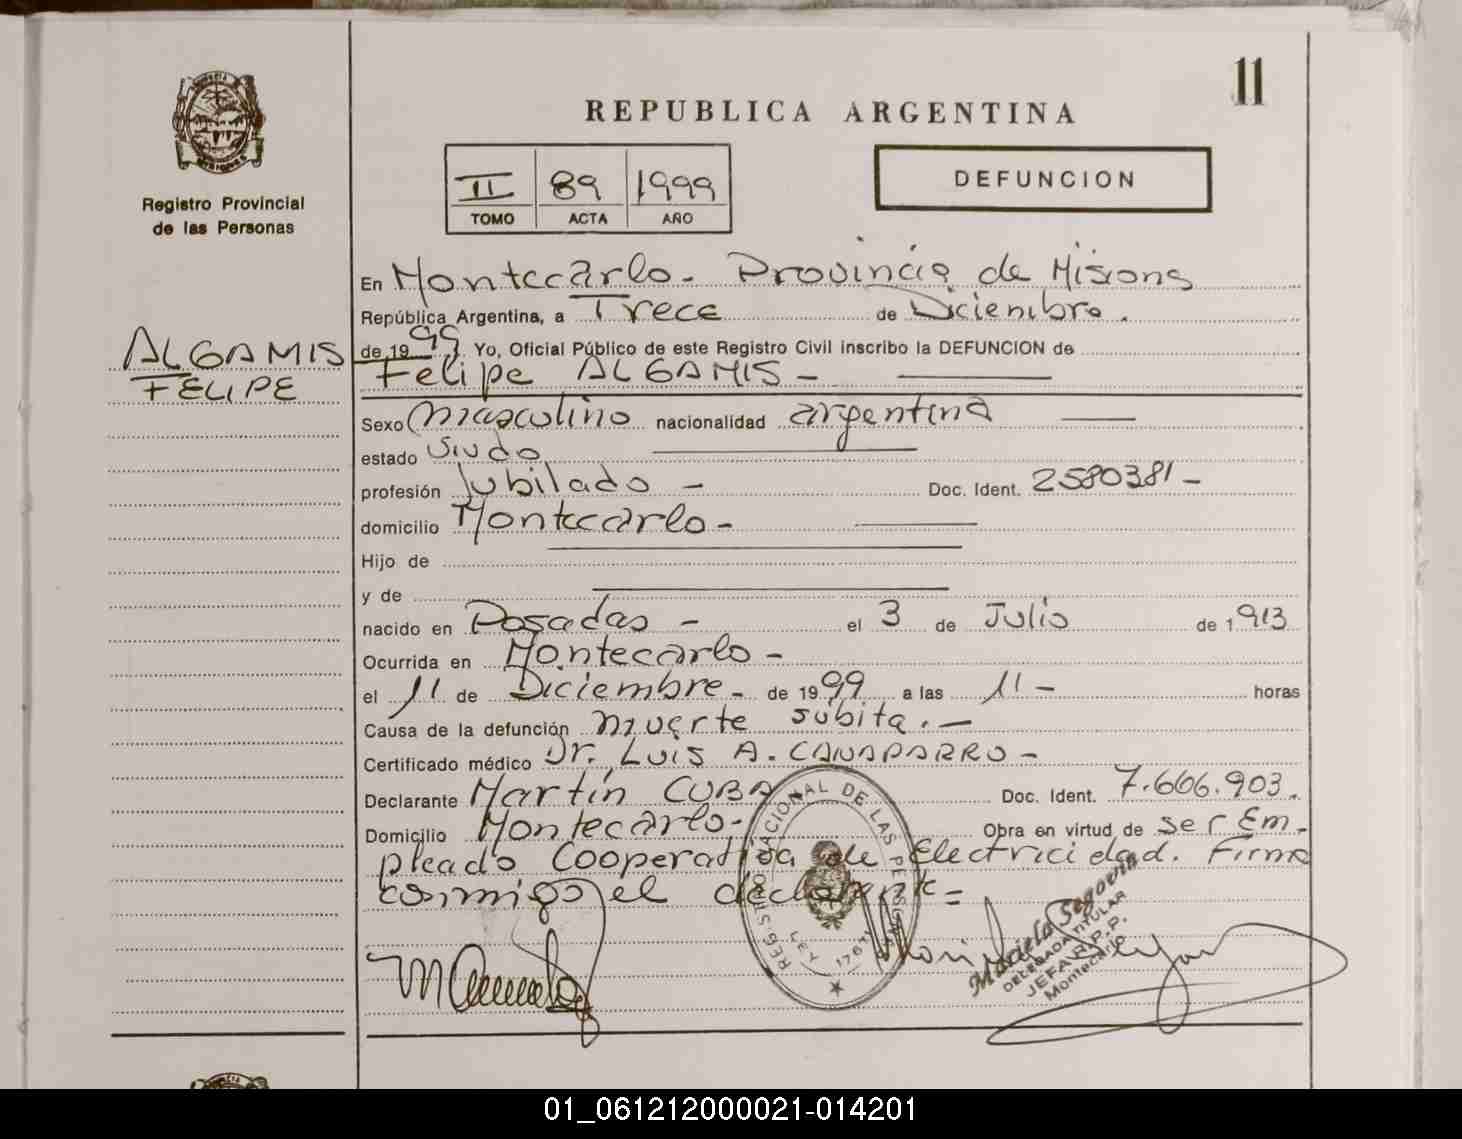 11
REPUBLICA ARGENTINA
II 89 1999
TOMO ACTA AÑO
DEFUNCION
Registro Provincial
de las Personas
ALGAMIS
FELIPE
En Montecarlo - Provincia de Misions
República Argentina, a Trece de Diciembre.
de 1999 Yo, Oficial Público de este Registro Civil inscribo la DEFUNCION de
Felipe ALGAMIS -
Sexo masculino nacionalidad argentina
estado Viudo
profesión Jubilado - Doc. Ident. 2580381 -
domicilio Montecarlo -
Hijo de
y de
nacido en Posadas - el 3 de Julio de 1913
Ocurrida en Montecarlo -
el 11 de Diciembre - de 1999 a las 11 - horas
Causa de la defunción muerte súbita. -
Certificado médico Dr. Luis A. CANAPARRO -
Declarante Martín CUBA Doc. Ident. 7.606.903.
Domicilio Montecarlo - Obra en virtud de ser Em-
pleado Cooperativa de Electricidad. Firma
conmigo el declarante =
REGISTRO NACIONAL DE LAS PERSONAS
LEY 17671
Mariela Segovia
DELEGADA TITULAR
JEFA R.P.P.
Montecarlo
01_061212000021-014201